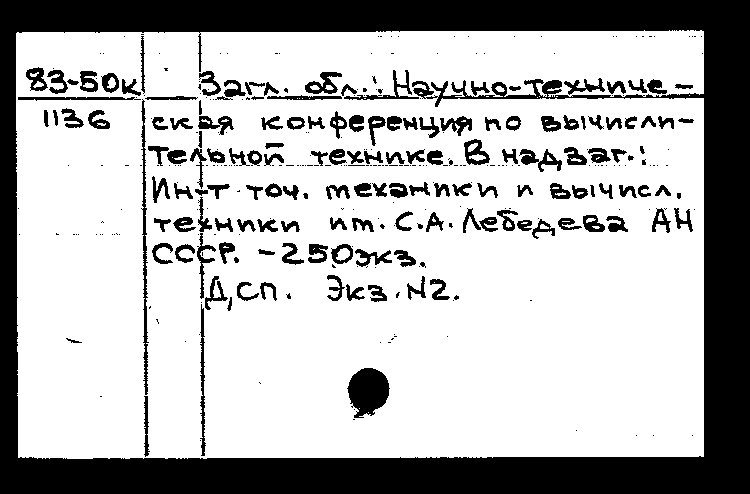 83-50к Загл. обл.: Научно-техниче-
1136 ская конференция по вычисли-
тельной технике. В надзаг.:
Ин-т точ. механики и вычисл.
техники им. С.А. Лебедева АН
СССР. - 250экз.
Дсп. Экз. N2.